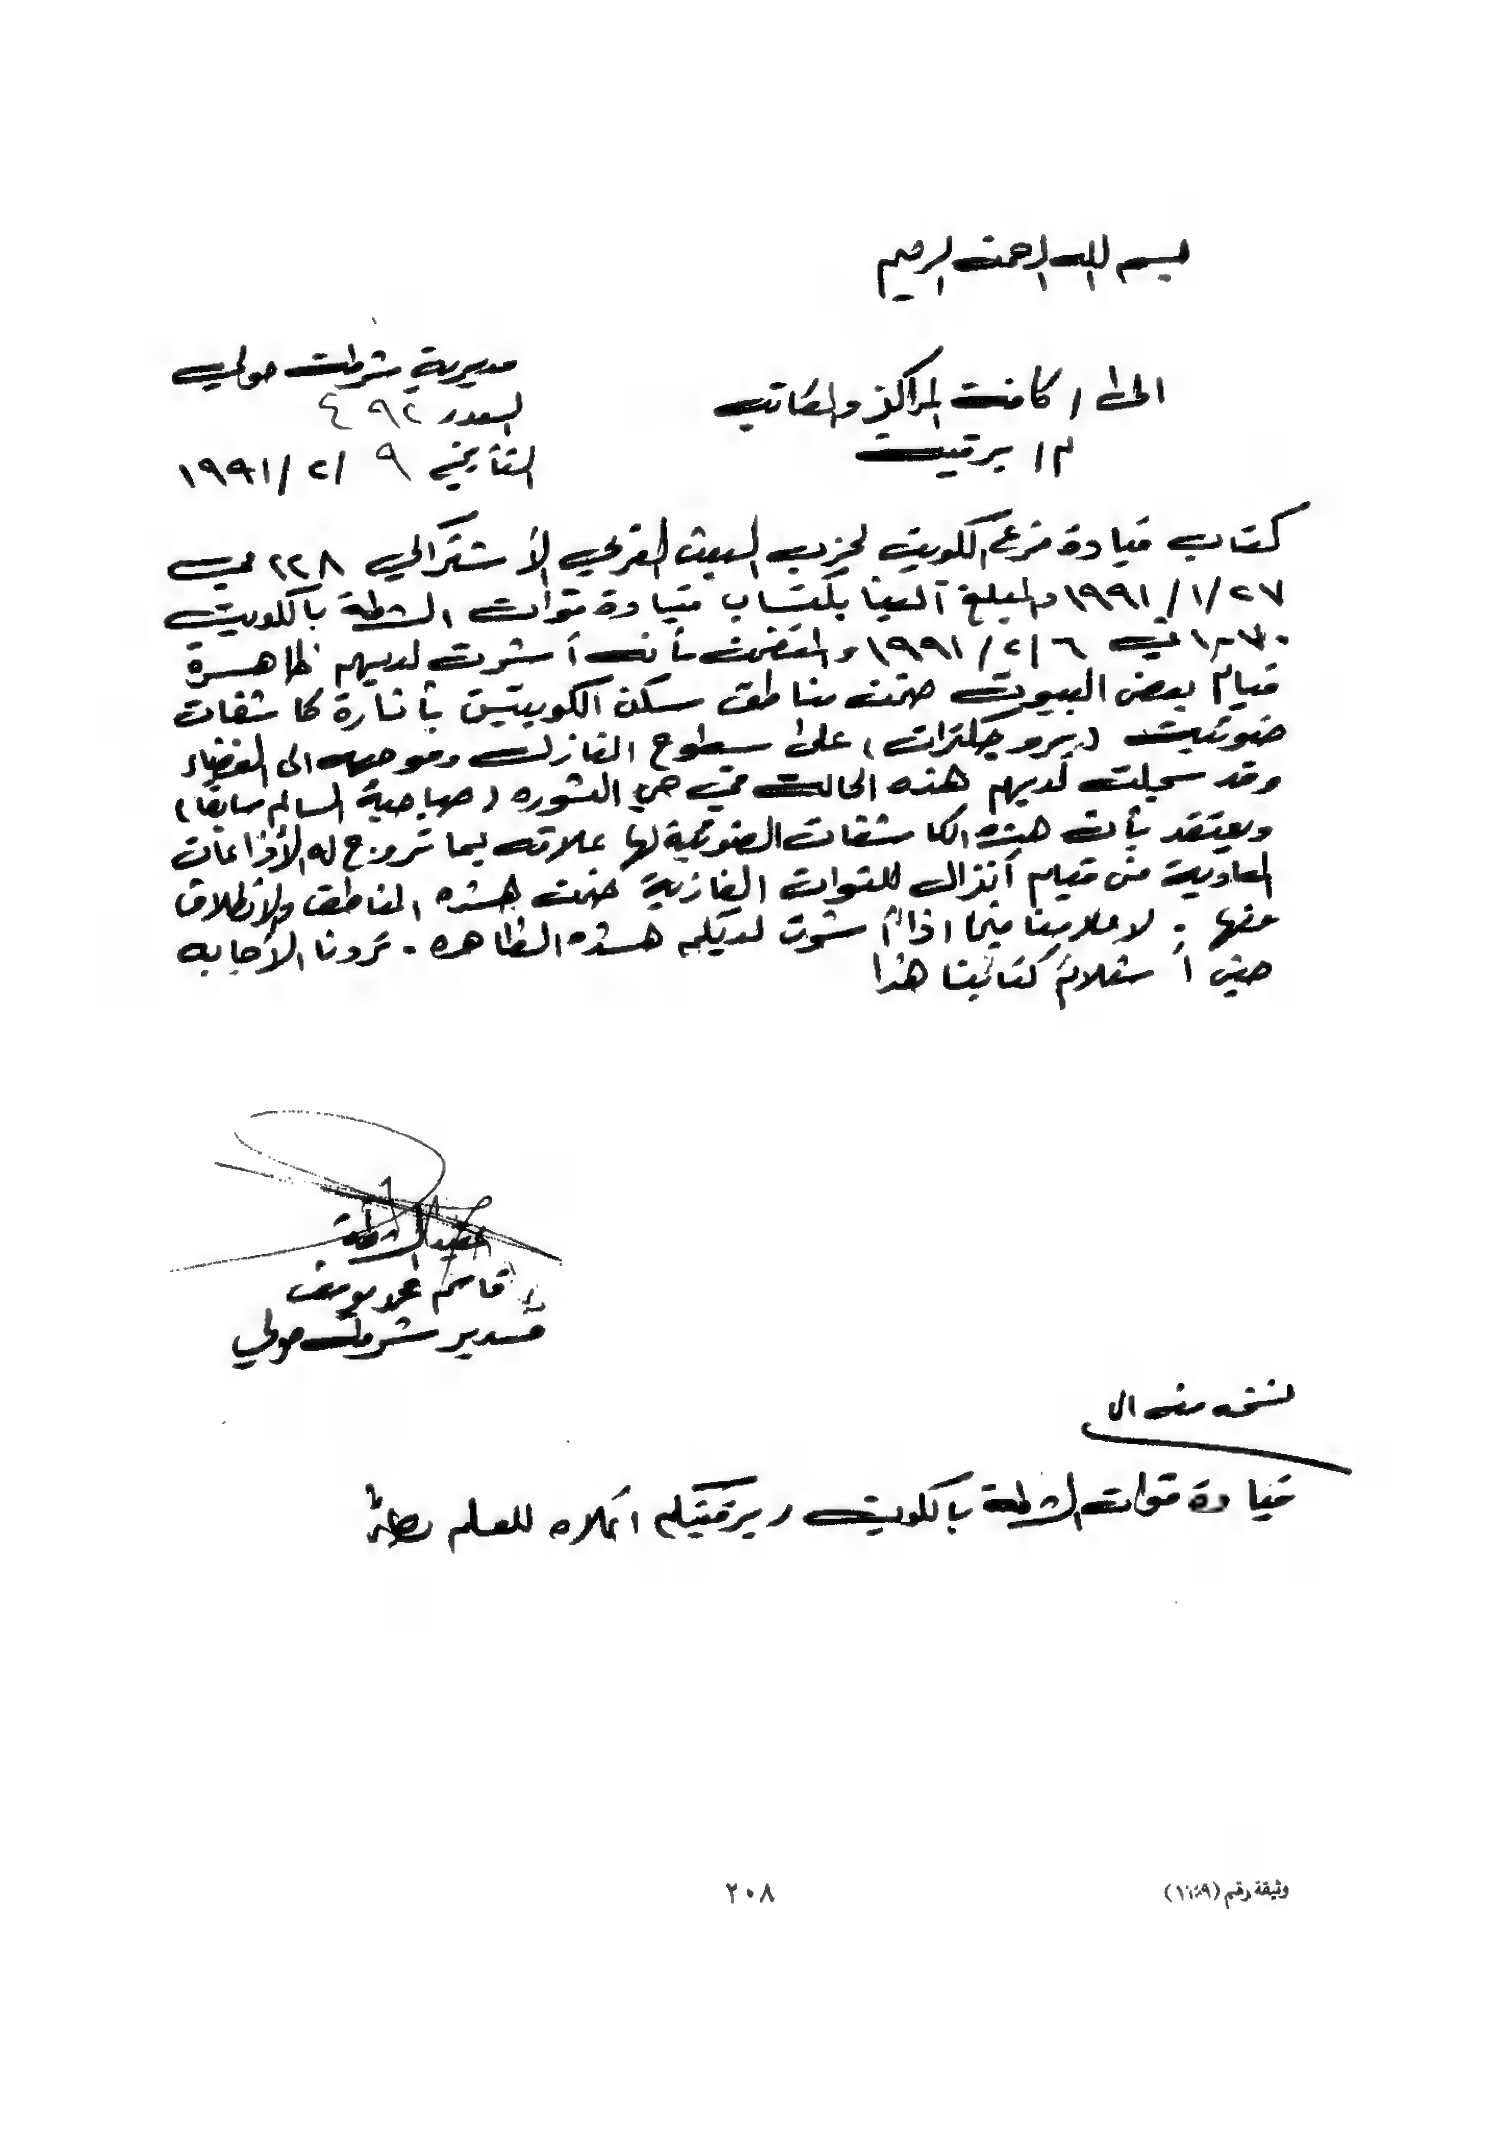 بسم الله الرحمن الرحيم
مديرية شرطة حولي
العدد ٤٩٢
التأريخ ٩ /٢/ ١٩٩١
الى / كافة المراكز والمكاتب
م / برقية
كتاب قيادة فرع الكويت لحزب البعث العربي الأشتراكي ٢٢٨ في
٢٧ /١/ ١٩٩١ والمبلغ آلينا بكتاب قيادة قوات الشرطة بالكويت
في ٦ /٢/ ١٩٩١ والمتضمن بأنه أشرت لديهم ظاهرة
قيام بعض البيوت ضمن مناطق سكن الكويتين بأنارة كاشفات
ضوئية (بروجكترات) على سطوح المنازل وموجهه الى الفضاء
وقد سجلت لديهم هذه الحالة في حي الثوره (صباحية السالم سابقا)
ويعتقد بأن هذه الكاشفات الضوئية لها علاقه بما تروج له الأذاعات
المعادية من قيام أنزال للقوات الغازية ضمن هذه المناطق والانطلاق
منها . لاعلامنا فيما اذا شوت لديكم هذه الظاهره . تردنا الأجابه
حين أستلام كتابنا هذا
عقيد الشرطة
قاسم محمد يوسف
مدير شرطة حولي
نسخه منه الى
قيادة قوات الشرطة بالكويت / برقيتكم اعلاه للعلم رجاءً
وثيقة رقم (١١٤٩)
٢٠٨